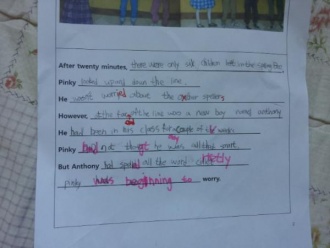 After twenty minutes, there were only six children left in the spelling Bee
Pinky looked up and down the line.
He wasn't worried about the other spellers.
However, at the end of the line was a new boy named Anthony
He had been in his class for couple of weeks.
Pinky had not thought he was all that smart.
But Anthony had spelled all the words correctly
pinky was beginning to worry.